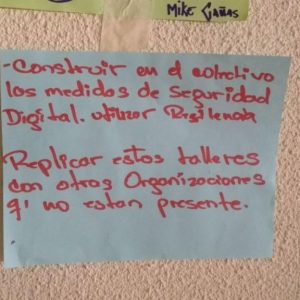 Mike Cañas
-Construir en el colectivo
las medidas de Seguridad
Digital. utilizar Resilencia
Replicar estos talleres
con otras Organizaciones
q' no estan presente.